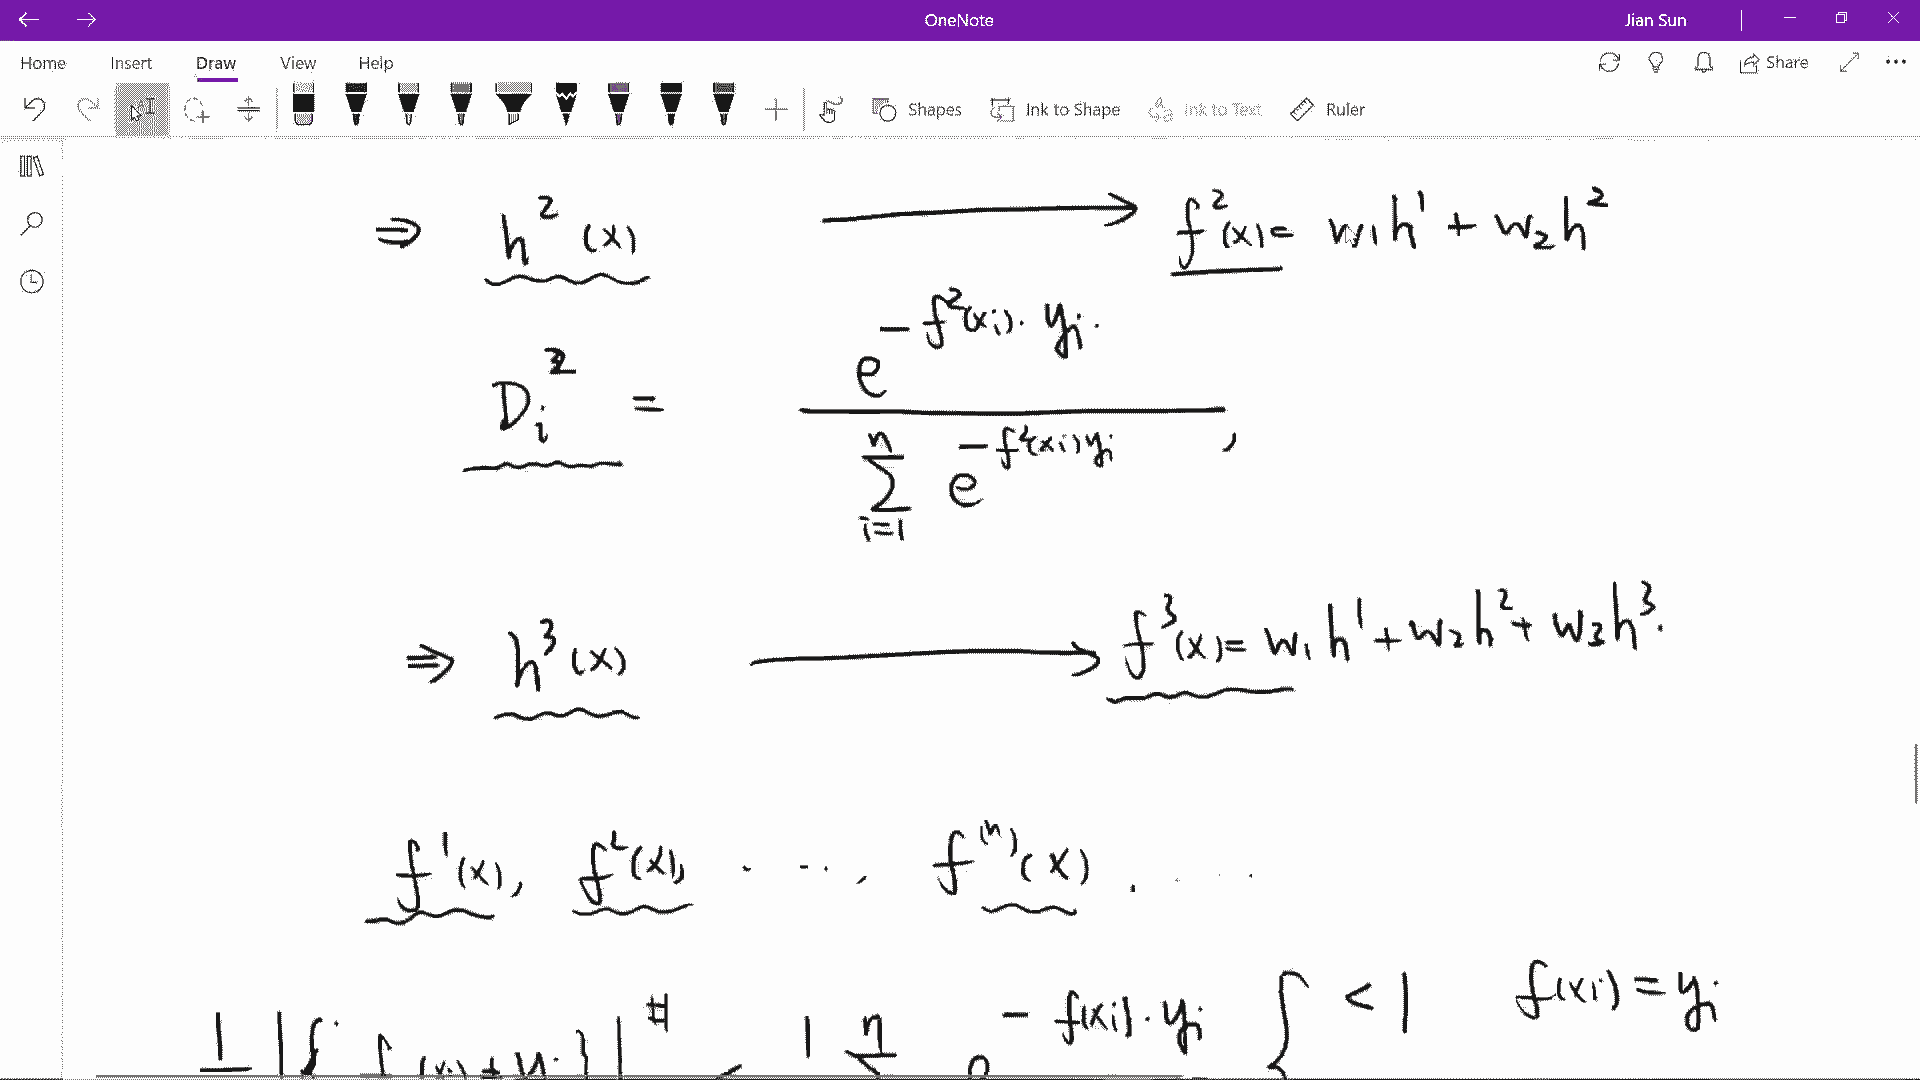 OneNote
Jian Sun
Home Insert Draw View Help
Share
Shapes Ink to Shape Ink to Text Ruler
⇒ h²(x) ⟶ f²(x) = w₁h¹ + w₂h²
Dᵢ² = e^{-f²(xᵢ)·yᵢ} / ∑_{i=1}^{n} e^{-f²(xᵢ)yᵢ} ,
⇒ h³(x) ⟶ f³(x) = w₁h¹ + w₂h² + w₃h³.
f¹(x), f²(x), ....., f⁽ⁿ⁾(x). ....
- f(xᵢ)·yᵢ { < 1 f(xᵢ) = yᵢ